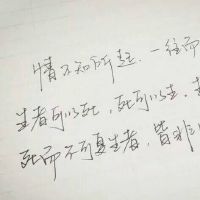 情不知所起.一往而
生者可以死,死可以生,
死而不可复生者,皆非